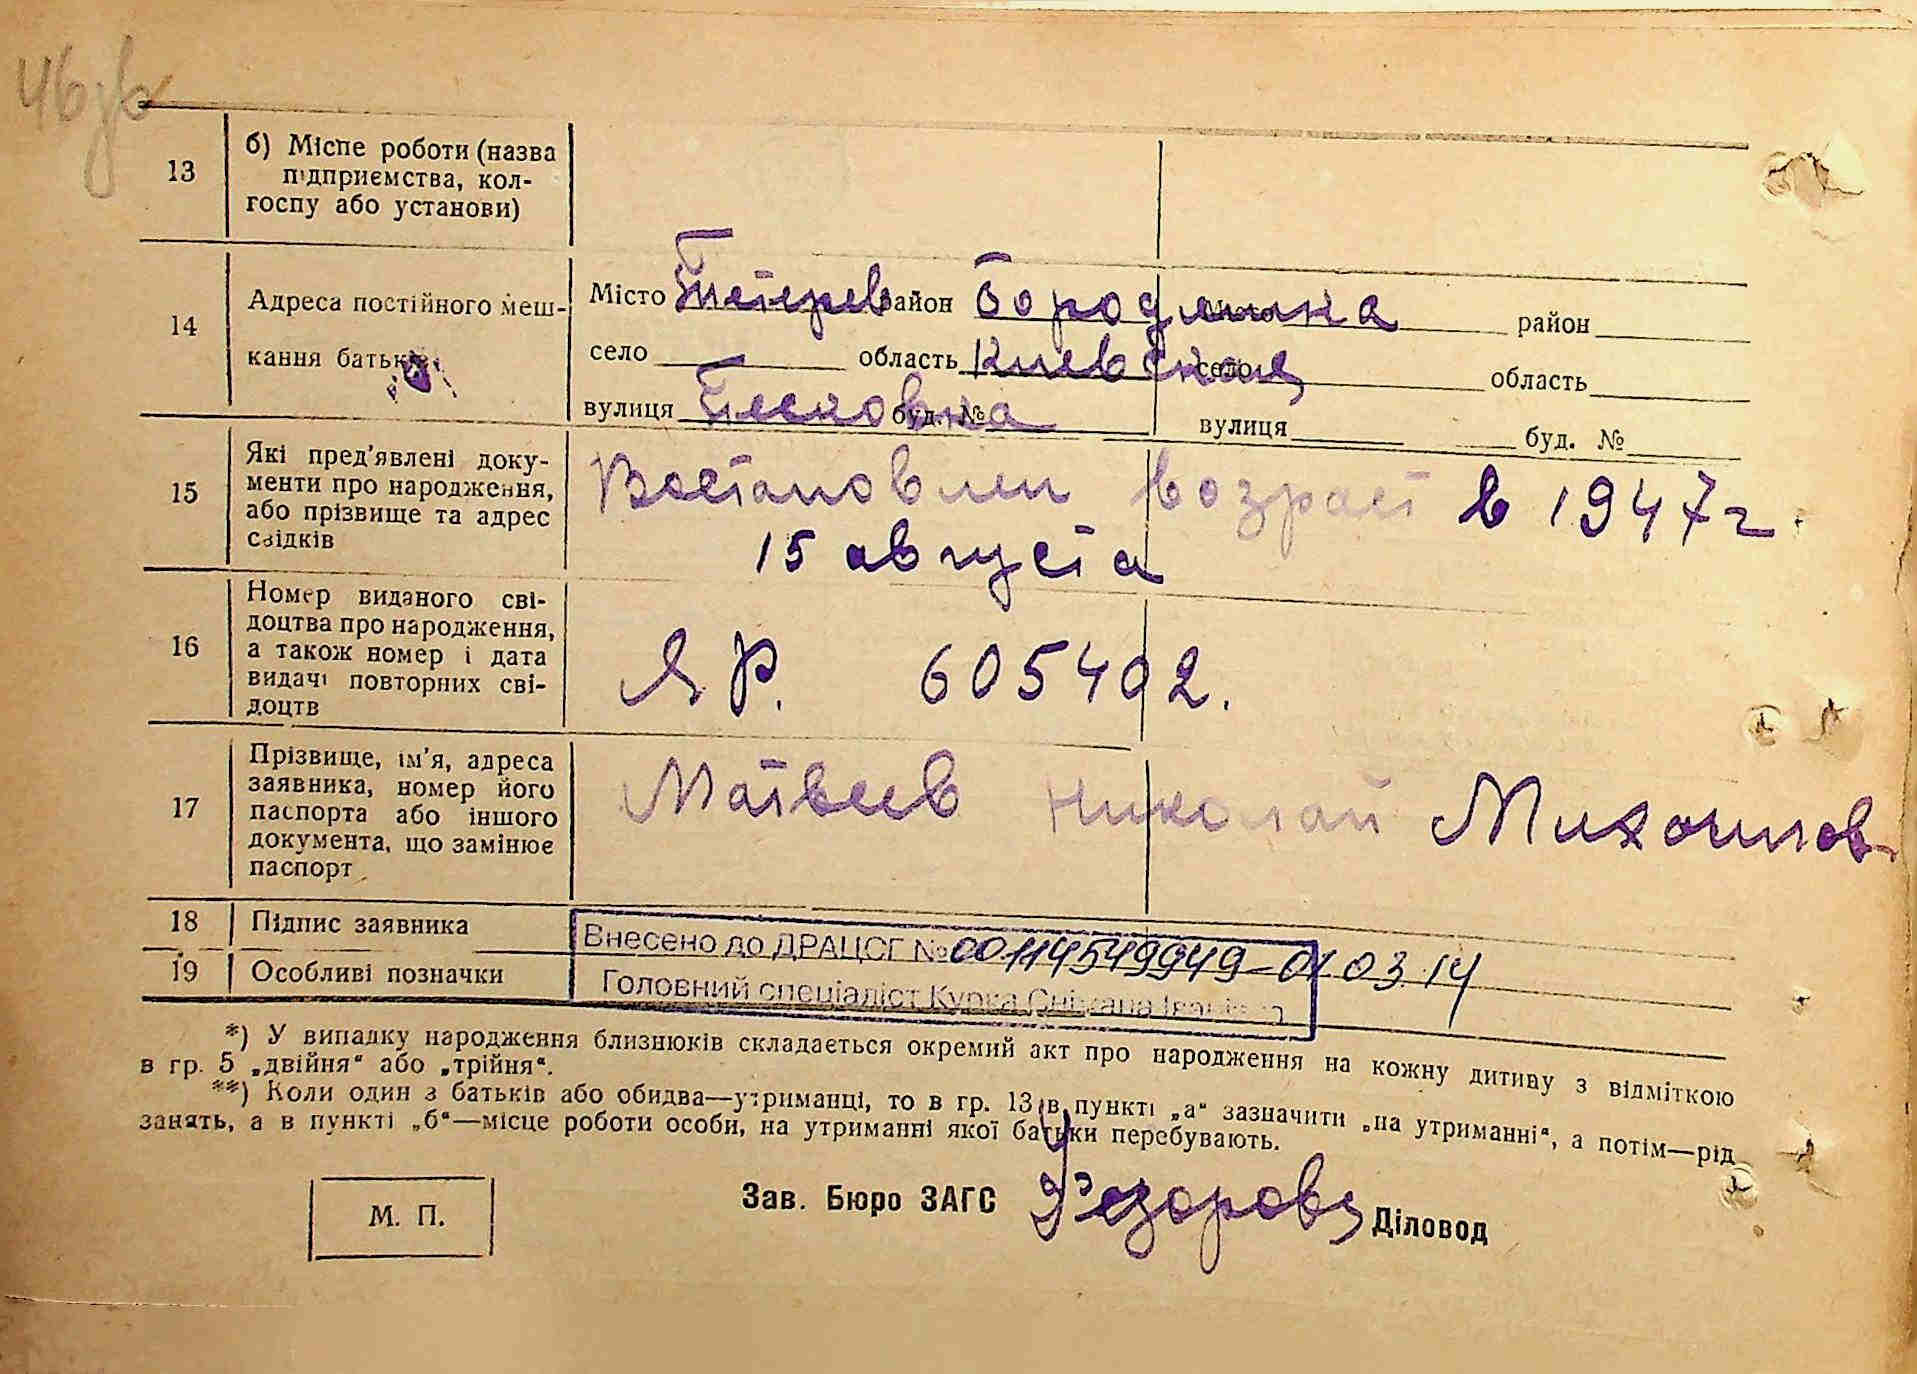 13
б) Місце роботи (назва
підприємства, кол-
госпу або установи)
14
Адреса постійного меш-
кання батьків
Місто Тетерев район Бородянка район
село область Киевская село область
вулиця Песковка буд. № вулиця буд. №
15
Які пред’явлені доку-
менти про народження,
або прізвище та адрес
свідків
Востановлен возраст в 1947 г.
15 августа
16
Номер виданого сві-
доцтва про народження,
а також номер і дата
видачі повторних сві-
доцтв
ЯР. 605402.
17
Прізвище, ім’я, адреса
заявника, номер його
паспорта або іншого
документа, що замінює
паспорт
Матвеев Николай Михайлов
18
Підпис заявника
19
Особливі позначки
Внесено до ДРАЦСГ № 00114549949-01.03.14
Головний спеціаліст Курка Сніжана Іванівна
*) У випадку народження близнюків складається окремий акт про народження на кожну дитину з відміткою
в гр. 5 „двійня“ або „трійня“.
**) Коли один з батьків або обидва—утриманці, то в гр. 13 в пункті „а“ зазначити „на утриманні“, а потім—рід
занять, а в пункті „б“—місце роботи особи, на утриманні якої батьки перебувають.
М. П.
Зав. Бюро ЗАГС
Діловод